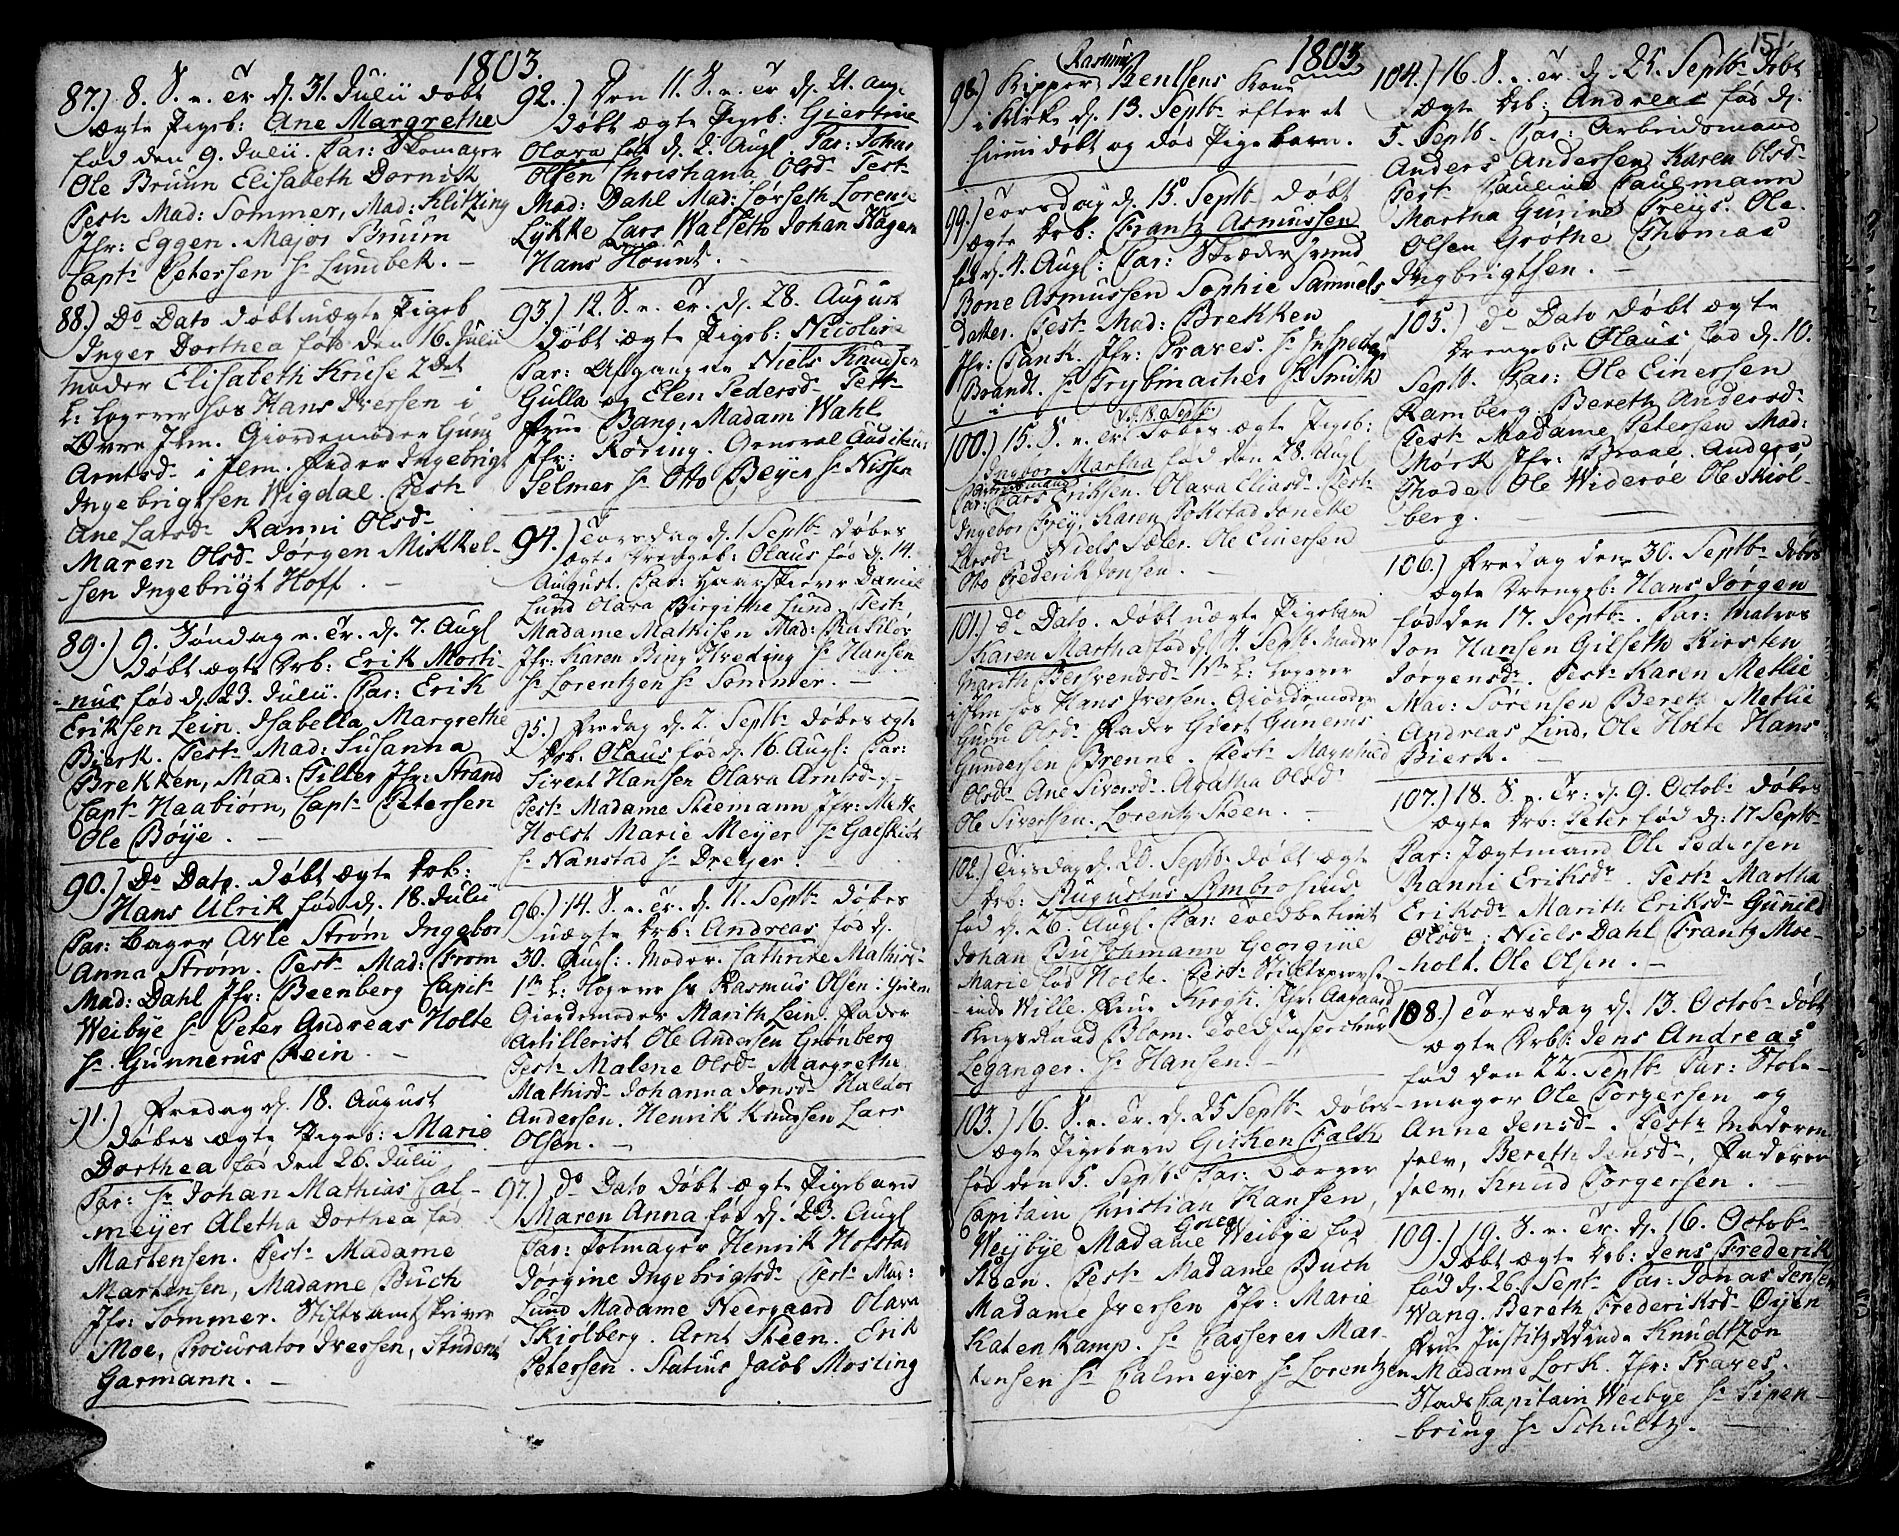 1803.
87.) 8. S. e. Tr. d. 31. Julii døbt
ægte Pigeb: Ane Margrethe
fød den 9. Julii. Par: Skomager
Ole Bruun Elisabeth Dornik
Test: Mad: Sommer, Mad: Klitzing
Jfr: Eggen. Major Bruun
Capt: Petersen Hr Lundbek. –
88.) Do Dato døbt uægte Pigeb
Inger Dorthea fød den 16. Julii
Moder Elisabeth Kruse 2det
L: Logerer hos Hans Iversen i
Øvre Ilen. Giordemoder Guru
Arntsd. i Ilen. Fader Ingebrigt
Ingebrigtsen Wigdal. Test:
Ane Larsd. Ranni Olsd.
Maren Olsd. Jørgen Mikkel-
sen Ingebrigt Hoff. –
89.) 9. Søndag e. Tr. d. 7. Augl
døbt ægte Drb: Erik Morti-
nus fød d. 23. Julii. Par: Erik
Eriksen Lein. Isabella Margrethe
Bierk. Test: Mad: Susanna
Brekken, Mad: Tiller Jfr: Strand
Capt: Haabiørn, Capt: Petersen
Ole Bøye. –
90.) Do Dato. døbt ægte Drb:
Hans Ulrik fød d. 18. Julii
Par: Bager Avle Strøm Ingebor
Anna Strøm. Test: Mad: From
Mad: Dahl Jfr: Beenberg Capit:
Weibye Hr Peter Andreas Holte
Hr Gunnerus Rein. –
91.) Fredag d. 18. August
døbes ægte Pigeb: Marie
Dorthea fød den 26. Julii
Par: Hr Johan Mathias Cal-
meyer Aletha Dorthea fød
Martensen. Test: Madame
Martensen, Madame Buch
Jfr: Sommer. Stiftsamtskriver
Moe, Procurator Iversen, Student
Garmann. –
92.) Den 11. S. e. Tr d. 21. Augl
døbt ægte Pigeb: Giertrine
Olava fød d. 2. Augl. Par: Johan
Olsen Christiana Olsd. Test:
Mad: Dahl Mad: Sørseth Lorentz
Lykke Lars Walseth Johan Hagen
Hans Hount. –
93.) 12. S. e. Tr. d. 28. August
døbt ægte Pigeb: Nicoline
Par: Afgangene Niels Knudsen
Gulla og Elen Pedersd. Test:
Frue Bang, Madam Wahl
Jfr: Røring. General Auditeur
Selmer Hr Otto Beyer Hr Nissen
94.) Torsdag d. 1. Septb: døbes
ægte Drengeb: Olaus fød d. 14.
August. Par: Haarskierer Daniel
Lund Olava Birgithe Lund. Test:
Madame Mathisen Mad:
Jfr: Karen Bing Hveding Hr Hansen
Hr Lorentzen Hr Sommer. –
95.) Fredag d. 2. Septb: døbes ægte
Drb. Olaus fød d. 16. Augl: Par:
Sivert Hansen Olava Arntsd.
Test: Madame Steemann Jfr: Mette
Holst Marie Meyer Hr Gaeskiøt
Hr Nanstad Hr Dreyer. –
96.) 14. S. e. Tr. d. 11. Septb: døbes
uægte Drb: Andreas fød d.
30. Augl: Moder. Cathrine Mathisd.
1ste L: Logerer hos Rasmus Olsen: Griem
Giordemoder Marith Lein. Fader
Artillerist Ole Andersen Grønberg
Test: Malene Olsd. Margrethe
Mathisd. Johanna Jonsd. Haldor
Andersen. Henrik Knudsen Lars
Olsen. –
97.) do Dato døbt ægte Pigebarn
Maren Anna fød d. 23. Augl
Par: Potmager Henrik Hofstad
Jørgine Ingebrigtsd. Test: Mad:
Lund Madame Neergaard Olava
Skiolberg. Arnt Steen. Erik
Petersen. Statius Jacob Mosling
1803.
98.) Kipper Rasmus Bentsens Kone
i Kirke d. 13. Septb: efter et
hiemmedøbt og død Pigebarn.
99.) Torsdag d. 15. Septb: døbt
ægte Drb: Frantz Asmussen
fød d. 4. Augl: Par: Skrædersvend
Bone Asmussen Sophie Samuels-
datter. Test: Mad: Brekken
Jfr: Tank. Jfr: Praxes. Hr Inspecteur
Brandt. Hr Frybmacher Hr Smith
100.) 15. S. e. Tr. d. 18. Septb: døbes ægte Pigeb:
Ingebor Martha fød den 28. Augl
Par: Lars Eriksen. Olava Eliasd. Test:
Ingebor Frey, Karen Tokstad Jonette
Larsd. Niels Sæler. Ole Einersen
Otto Frederik Jonsen. –
101.) do Dato. døbt uægte Pigebarn
Karen Martha fød d. 4. Septb. Moder
Marith Bersvendsd. 1ste L: Logerer
i Ilen hos Hans Iversen. Giordemoder
Guru Olsd. Fader Giert Gunerius
Gundersen Brenne. Test: Magnhild
Olsd. Ane Siversd. Agatha Olsd.
Ole Siversen. Lorentz Steen. –
102.) Tirsdag d. 20. Septb: døbt ægte
Drb: Augustus Ambrosius
fød d. 26. Augl. Par: Toldbetient
Johan Buschmann Georgine
Marie fød Holte. Test: Stiftsprovst-
inde Wille. Frue Krogh. Jfr: Aagaard
Krigsraad Blom. Toldinspecteur
Leganger. Hr Hansen. –
103.) 16. S. e. Tr. d. 25 Septb: døbes
ægte Pigebarn Gisken Falk
fød den 5. Septb: Par: Borger
Capitain Christian Hansen
Weybye Madame Grea Weibye fød
Haan. Test: Madame Buch
Madame Iversen Jfr: Marie
Katen Kamp. Hr Casserer Mar-
tensen Hr Calmeyer Hr Lorentzen
151.
104.) 16. S. e. Tr. d. 25. Septb: døbt
ægte Drb: Andreas fød d.
5. Septb. Par: Arbeidsmand
Anders Andersen Karen Olsd.
Test: Pauline Paulmann
Martha Gurine Preus. Ole
Olsen Grøthe Thomas
Ingbrigtsen. –
105.) do Dato døbt ægte
Drengeb: Olaus, fød d. 10.
Septb. Par: Ole Einersen
Ramberg. Bereth Andersd.
Test: Madame Petersen Mad:
Mørk Jfr: Braae. Anders
Thode Ole Widerøe Ole Skiol-
berg. –
106.) Fredag den 30. Septb: døbes
ægte Drengeb: Hans Jørgen
fød den 17. Septb: Par: Matros
Jon Hansen Gilseth Kirsten
Jorgensd. Test: Karen Metlie
Mad: Sørensen Bereth Metlie
Andreas Lind, Ole Holte Hans
Bierk. –
107.) 18. S. e. Tr: d. 9. Octob: døbes
ægte Drb: Peter fød d. 17 Septb:
Par: Jægtmand Ole Pedersen
Ranni Eriksd. Test: Martha
Eriksd. Marith Eriksd. Gunild
Olsd. Niels Dahl Frantz Moe-
holt. Ole Olsen. –
108.) Torsdag d. 13. Octob: døbt
ægte Drb: Jens Andreas
fød den 22. Septb: Par: Stole-
mager Ole Torgersen og
Anne Jensd. Test: Moderen
selv, Bereth Jensd., Faderen
selv, Knud Torgersen. –
109.) 19. S. e. Tr. d. 16. Octob:
døbt ægte Drb: Jens Frederik
fød d. 26. Sept: Par: Jonas Jensen
Wang. Bereth Frederiksd. Øyen
Frue Justitzraadinde Knudtzon
Madame Lork. Jfr: Praxes.
Stads Capitain Weibye Hr Pipen-
bring Hr Schultz. –